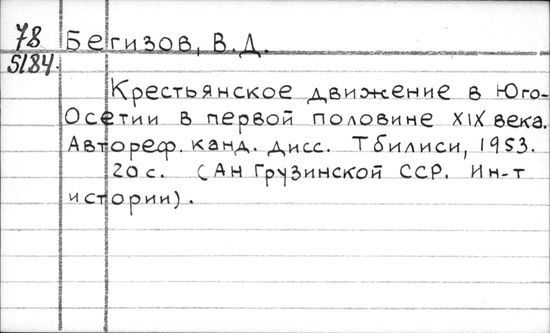 78 Бегизов, В.Д.
5184.
Крестьянское движение в Юго-
Осетии в первой половине XIX века.
Автореф. канд. дисс. Тбилиси, 1953.
20 с. (АН Грузинской ССР. Ин-т
истории).